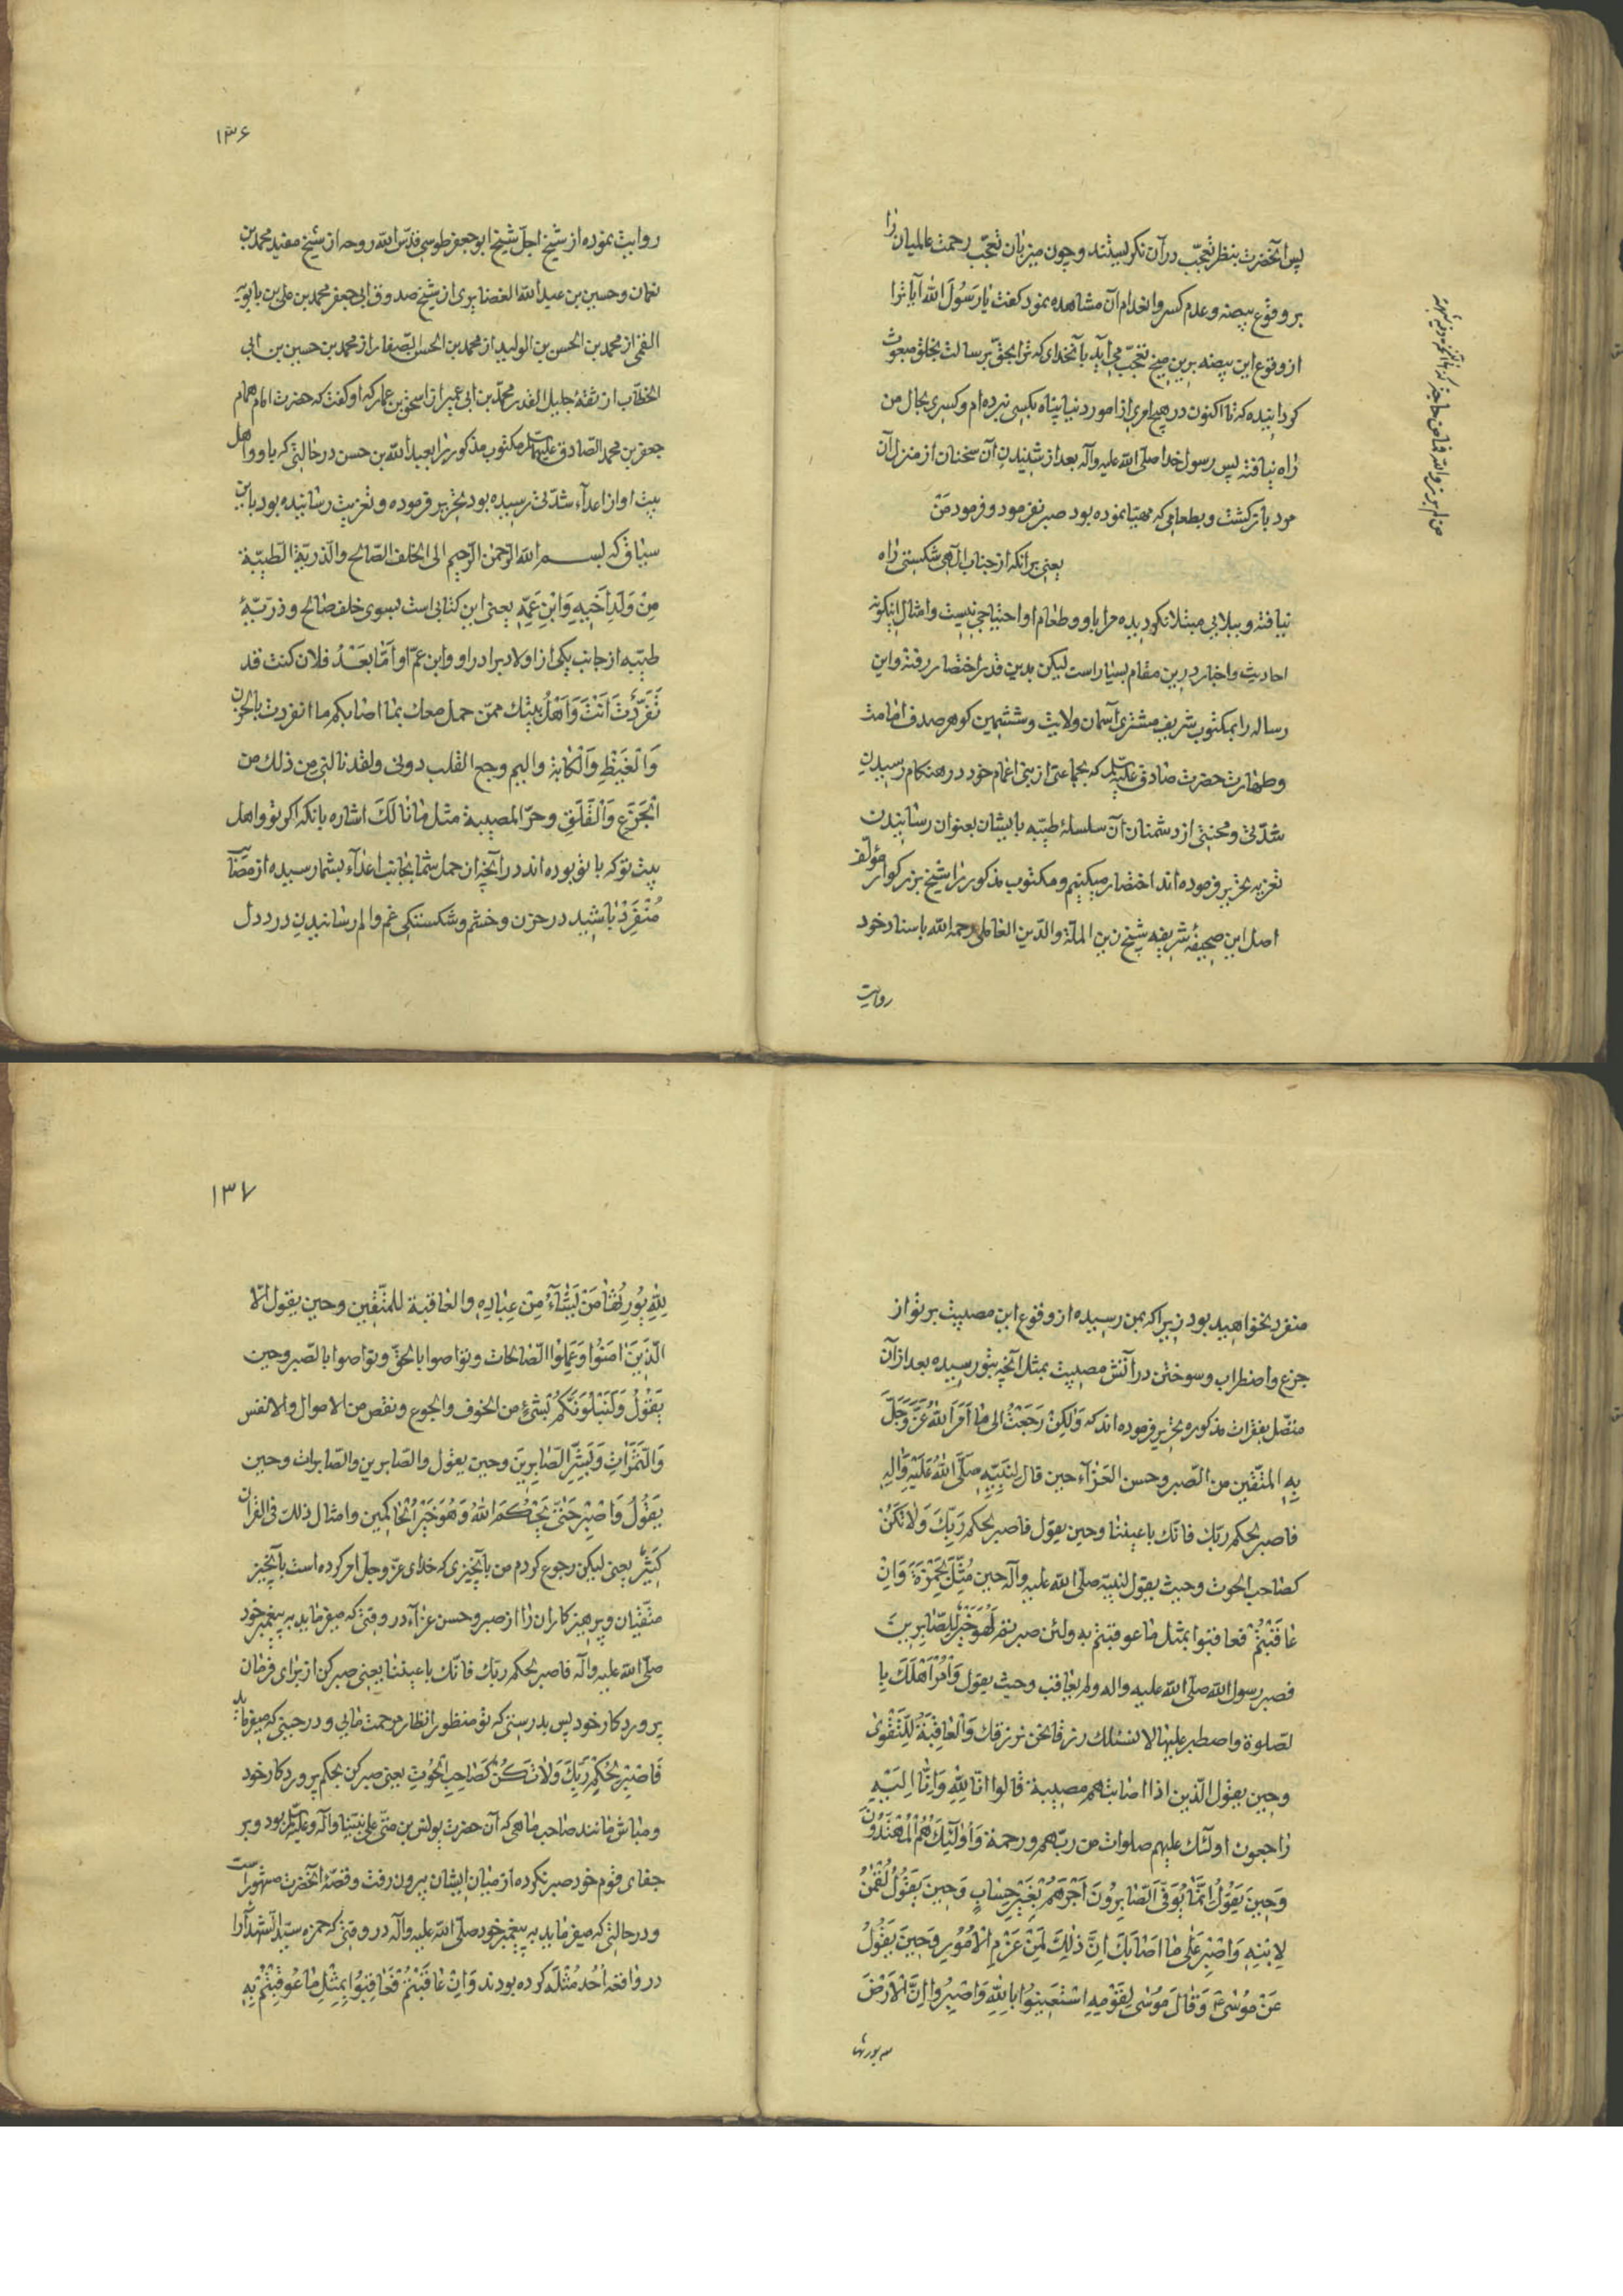 پس آنحضرت بنظر تعجّب در آن نکریستند و چون میزبان تعجّب رحمت عالمیان را
بر وقوع بیضه و عدم کسر و انهدام آن مشاهده نمود کفت یا رَسُولَ الله آیا ترا
از وقوع این بیضه برین میخ تعجّب می‌آید بآنخدای که ترا بحقّ برسالت بخلق مبعوث
کردانیده که تا اکنون در هیچ امری از امور دنیا پناه بکسی نبرده‌ام و کسری بحال من
راه نیافته پس رسول خدا صلّی الله علیه وآله بعد از شنیدن آن سخنان از منزل آن
مرد بازکشت و بطعامی که مهیّا نموده بود صبر نفرمود و فرمود مَنْ
یعنی هرانکه از جناب الهی شکستنی راه
نیافته و ببلایی مبتلا نکردیده مرا باو و طعام او احتیاجی نیست و امثال اینکونه
احادیث و اخبار درین مقام بسیار است لیکن بدین قدر اختصار رفته و این
رساله را بمکتوب شریف مشتری آسمان ولایت و ششمین کوهر صدف امامت
و طهارت حضرت صادق علیه السّلم که بجماعتی از بنی اعمام خود در هنکام رسیدن
شدّتی و محنتی از دشمنان آن سلسلهٔ طیّبه بایشان بعنوان رسانیدن
تعزیه تحریر فرموده‌اند اختصار میکنیم و مکتوب مذکور را شیخ بزرکوار مؤلف
اصل این صحیفهٔ شریفه شیخ زین الملّة والدّین العاملی رحمه الله باسناد خود
روایت
۱۳۶
روایت نموده از شیخ اجلّ شیخ ابو جعفر طوسی قدّس الله روحه از شیخ مفید محمد بن
نعمان و حسین بن عبیدالله الغضایری از شیخ صدوق ابی جعفر محمد بن علی بن بابویه
القمی از محمد بن الحسن بن الولید از محمد بن الحسن الصّفار از محمد بن حسین بن ابی
الخطّاب از ثقهٔ جلیل القدر محمّد بن ابی عمیر از اسحق بن عمار که او کفت که حضرت امام همام
جعفر بن محمد الصّادق علیهما السلم مکتوب مذکور را بعبدالله بن حسن در حالتی که باو و اهل
بیت او از اعدآء شدّتی رسیده بود تحریر فرموده و تعزیت رسانیده بود باین
سیاق که بســـم الله الرّحمن الرّحیم الی الخلف الصّالح والذریّة الطّیّبة
مِنْ وَلَدِ اَخیهِ وَابْنِ عَمِّهِ یعنی این کتابی است بسوی خلف صالح و ذرّیّهٔ
طیّبه از جانب یکی از اولاد برادر او و ابن عمّ او اَمّا بَعْدُ فلان کنت قد
تَفَرَّدْتَ اَنْتَ وَاَهْلُ بیتك ممّن حمل معك بما اصابکم ما انفردت بالحُزن
وَالْغَیْظِ وَالْکَابَةِ والیم وجع القلب دونی ولقد نالنی من ذلك من
الْجَزَعِ وَالْقَلَقِ وحرّ المصیبة مثل مٰا نٰالَكَ اشاره بانکه اکر تو و اهل
بیت تو که با تو بوده‌اند در آنچه از حمل شما بجانب اعداء بشما رسیده از مصایب
مُنْفَرِدْ باشید در حزن و خشم و شکستکی غم و الم رسانیدن درد دل
منفرد نخواهید بود زیرا که بمن رسیده از وقوع این مصیبت بر تو از
جزع و اضطراب و سوختن در آتش مصیبت بمثل آنچه بتو رسیده بعد از آن
متصّل بفقرات مذکوره تحریر فرموده‌اند که وَلٰکِنْ رَجَعْتُ الی مٰا اَمَرَ اللهُ عَزَّ وَجَلَّ
بِهِ المتّقین من الصّبر وحسن العَزآء حین قال لِنَبِیِّهِ صلّی اللهُ عَلَیْهِ وَالِهِ
فاصبر لحکم ربّك فانّك باعیننا وحین یقول فاصبر لحکم رَبِّكَ وَلٰا تَکُنْ
کصٰاحب الحوت وحیث یقول لنبیّه صلّی الله علیه وآله حین مُثِّلَ بِحَمْزَةَ وَاِنْ
عٰاقَبْتُمْ فعاقبوا بمثل ما عوقبتم به ولئن صبرتم لَهُوَ خَیْرٌ لِلصّٰابِرینَ
فصبر رسول الله صلّی الله علیه واله ولم یعاقب وحیث یقول وَأْمُرْ اَهْلَكَ با
لصّلوة واصطبر علیها لا نسئلك رزقا نحن نرزقك وَالْعٰاقِبَةُ لِلتَّقْویٰ
وحین یقول الّذین اذا اصابتهم مصیبة قالوا انّا لِلّٰهِ وَاِنّٰا اِلَیْهِ
راجعون اولئك علیهم صلوات من ربّهم ورحمة وَاُولٰئِكَ هُمُ الْمُهْتَدُونَ
وَحینَ یَقُولُ اِنَّمٰا یُوَفَّی الصّٰابِرُونَ اَجْرَهُمْ بِغَیْرِ حِسٰابٍ وَحینَ یَقُولُ لُقْمٰنُ
لِابْنِهِ وَاصْبِرْ عَلیٰ مٰا اَصٰابَكَ اِنَّ ذٰلِكَ لَمِنْ عَزْمِ الْاُمُورِ وَحینَ یَقُولُ
عَنْ مُوسٰی وَقٰالَ مُوسٰی لِقَوْمِهِ اسْتَعینُوا بِاللّٰهِ وَاصْبِرُوا اِنَّ الْاَرْضَ
۱۳۷
لِلّٰهِ یُورِثُهٰا مَنْ یَشٰآءُ مِنْ عِبٰادِهِ والعاقبة للمتّقین وحین یقول الّا
الّذینَ اٰمَنُوا وَعَمِلُوا الصّالحات وتواصوا بالحقّ وتواصوا بالصّبر وحین
یَقُولُ وَلَنَبْلُوَنَّکُمْ بِشَیْءٍ من الخوف والجوع ونقص من الاموال والانفس
وَالثَّمَرٰاتِ وَبَشِّرِ الصّٰابِرینَ وحین یقول والصّابرین والصّابرات وحین
یَقُولُ وَاصْبِرْ حَتّٰی یَحْکُمَ اللهُ وَهُوَ خَیْرُ الْحٰاکِمین وامثال ذلك فی القرآن
کَثیرٌ یعنی لیکن رجوع کردم من بآنچیزی که خدای عزّ وجلّ امر کرده است بآنچیز
متّقیان و پرهیزکاران را از صبر و حسن عزآء در وقتی که میفرماید به پیغمبر خود
صلّی الله علیه وآله فاصبر لحکم ربّك فانّك باعیننا یعنی صبر کن از برای فرمان
پروردکار خود پس بدرستی که تو منظور انظار مرحمت مایی و در حینی که میفرماید
فَاصْبِرْ لِحُکْمِ رَبِّكَ وَلٰا تَکُنْ کَصٰاحِبِ الْحُوتِ یعنی صبر کن بحکم پروردکار خود
و مباش مانند صاحب ماهی که آن حضرت یونس بن متّی علی نبیّنا وآله وعلیه السّلم بود و بر
جفای قوم خود صبر نکرده از میان ایشان بیرون رفت و قصّهٔ آنحضرت مشهور است
و در حالتی که میفرماید به پیغمبر خود صلّی الله علیه وآله در وقتی که حمزه سیّد الشّهدآء را
در واقعه اُحُد مُثْلَه کرده بودند وَاِنْ عٰاقَبْتُمْ فَعٰاقِبُوا بِمِثْلِ مٰا عُوقِبْتُمْ بِهِ